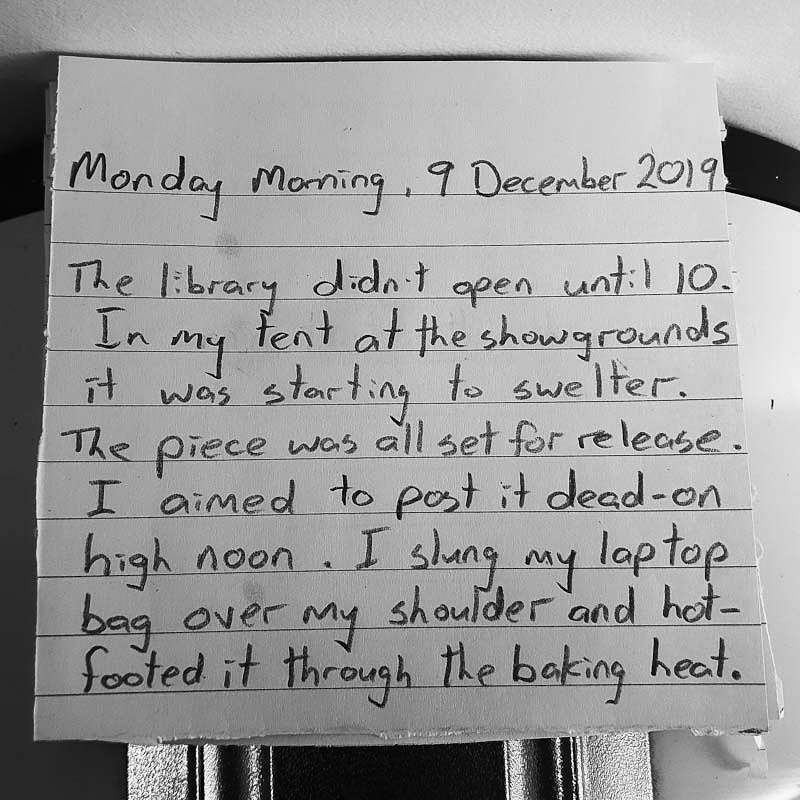 Monday Morning, 9 December 2019
The library didn't open until 10.
In my tent at the showgrounds
it was starting to swelter.
The piece was all set for release.
I aimed to post it dead-on
high noon. I slung my laptop
bag over my shoulder and hot-
footed it through the baking heat.